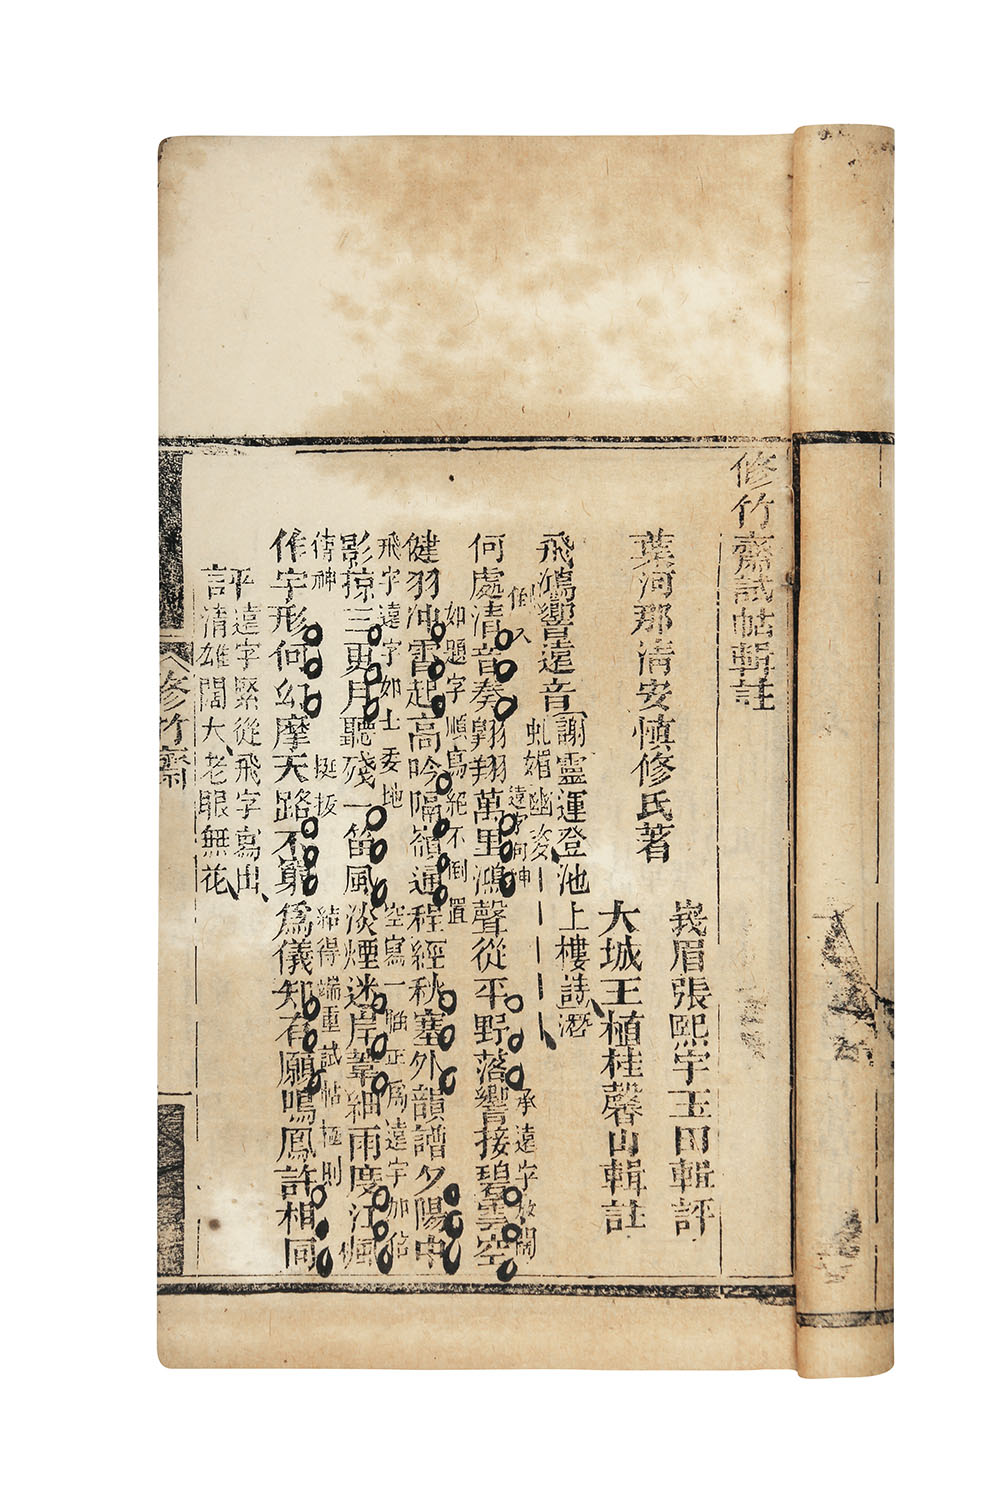 修竹齋試帖輯註
峩眉張熙宇玉田輯評
葉河那清安慎修氏著
大城王植桂馨山輯註
飛鴻響遠音
謝靈運登池上樓詩潛
虬媚幽姿
遠字何神
承遠字放闊
何處清音奏翱翔萬里鴻聲從平野落響接碧雲空
如題字順寫絕不倒置
健羽沖霄起高吟隔嶺通程經秋塞外韻譜夕陽中
飛字遠字如土委地
空寫一聯正為遠字加倍
影掠三更月聽殘一笛風淡煙迷岸葦細雨度江楓
傳神
挺拔
結得端重試帖極則
作字形何幻摩天路不窮為儀知有願鳴鳳許相同
評
遠字緊從飛字寫出
清雄闊大老眼無花
修竹齋